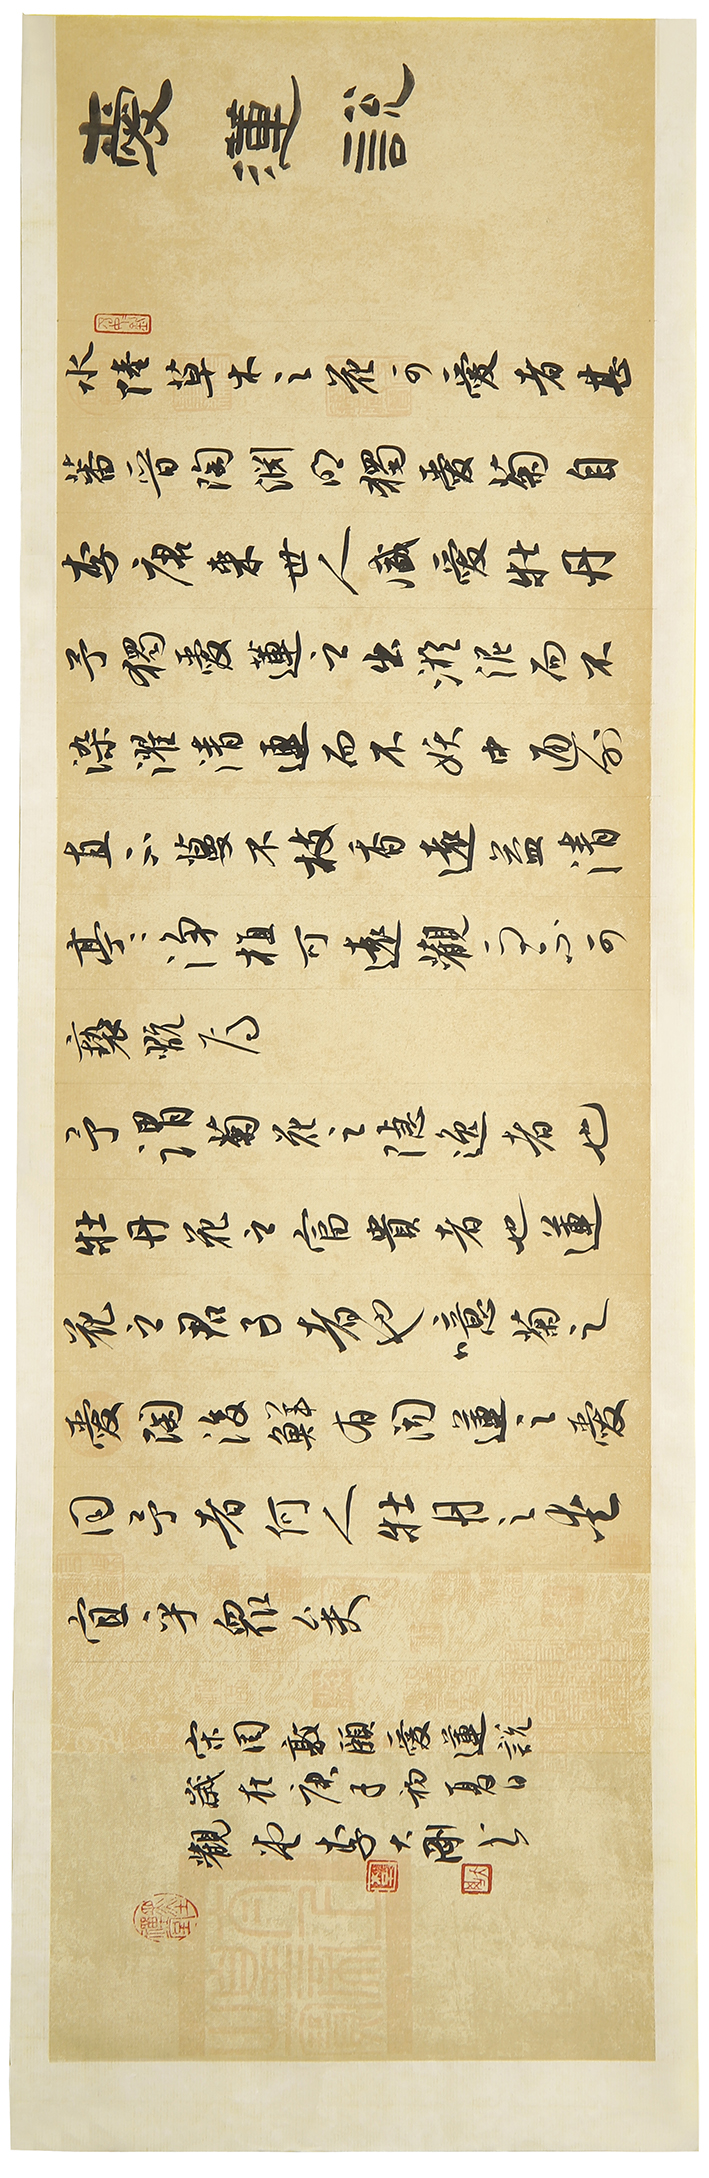 愛蓮說
水陸草木之花可愛者甚
蕃晉陶淵明獨愛菊自
李唐來世人盛愛牡丹
予獨愛蓮之出淤泥而不
染濯清漣而不妖中通外
直不蔓不枝香遠益清
亭〻淨植可遠觀而不可
褻翫焉
予謂菊花之隱逸者也
牡丹花之富貴者也蓮
花之君子者也噫菊之
愛陶後鮮有聞蓮之愛
同予者何人牡丹之愛
宜乎衆矣
宋周敦頤愛蓮說
歲在庚子初夏日
觀李大剛